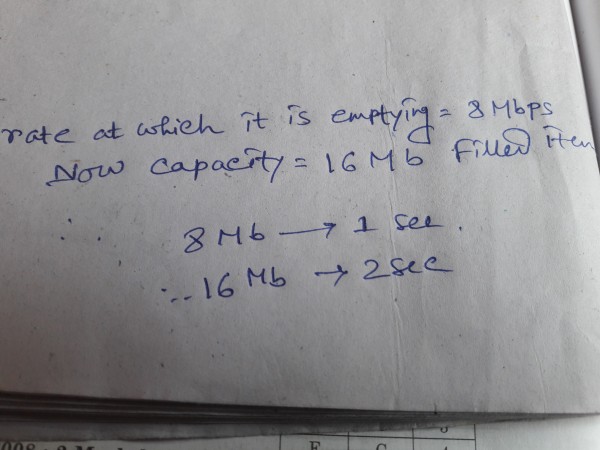 rate at which it is emptying = 8 Mbps
Now capacity = 16 Mb Filled item
8 Mb → 1 sec.
∴ 16 Mb → 2 sec
E C